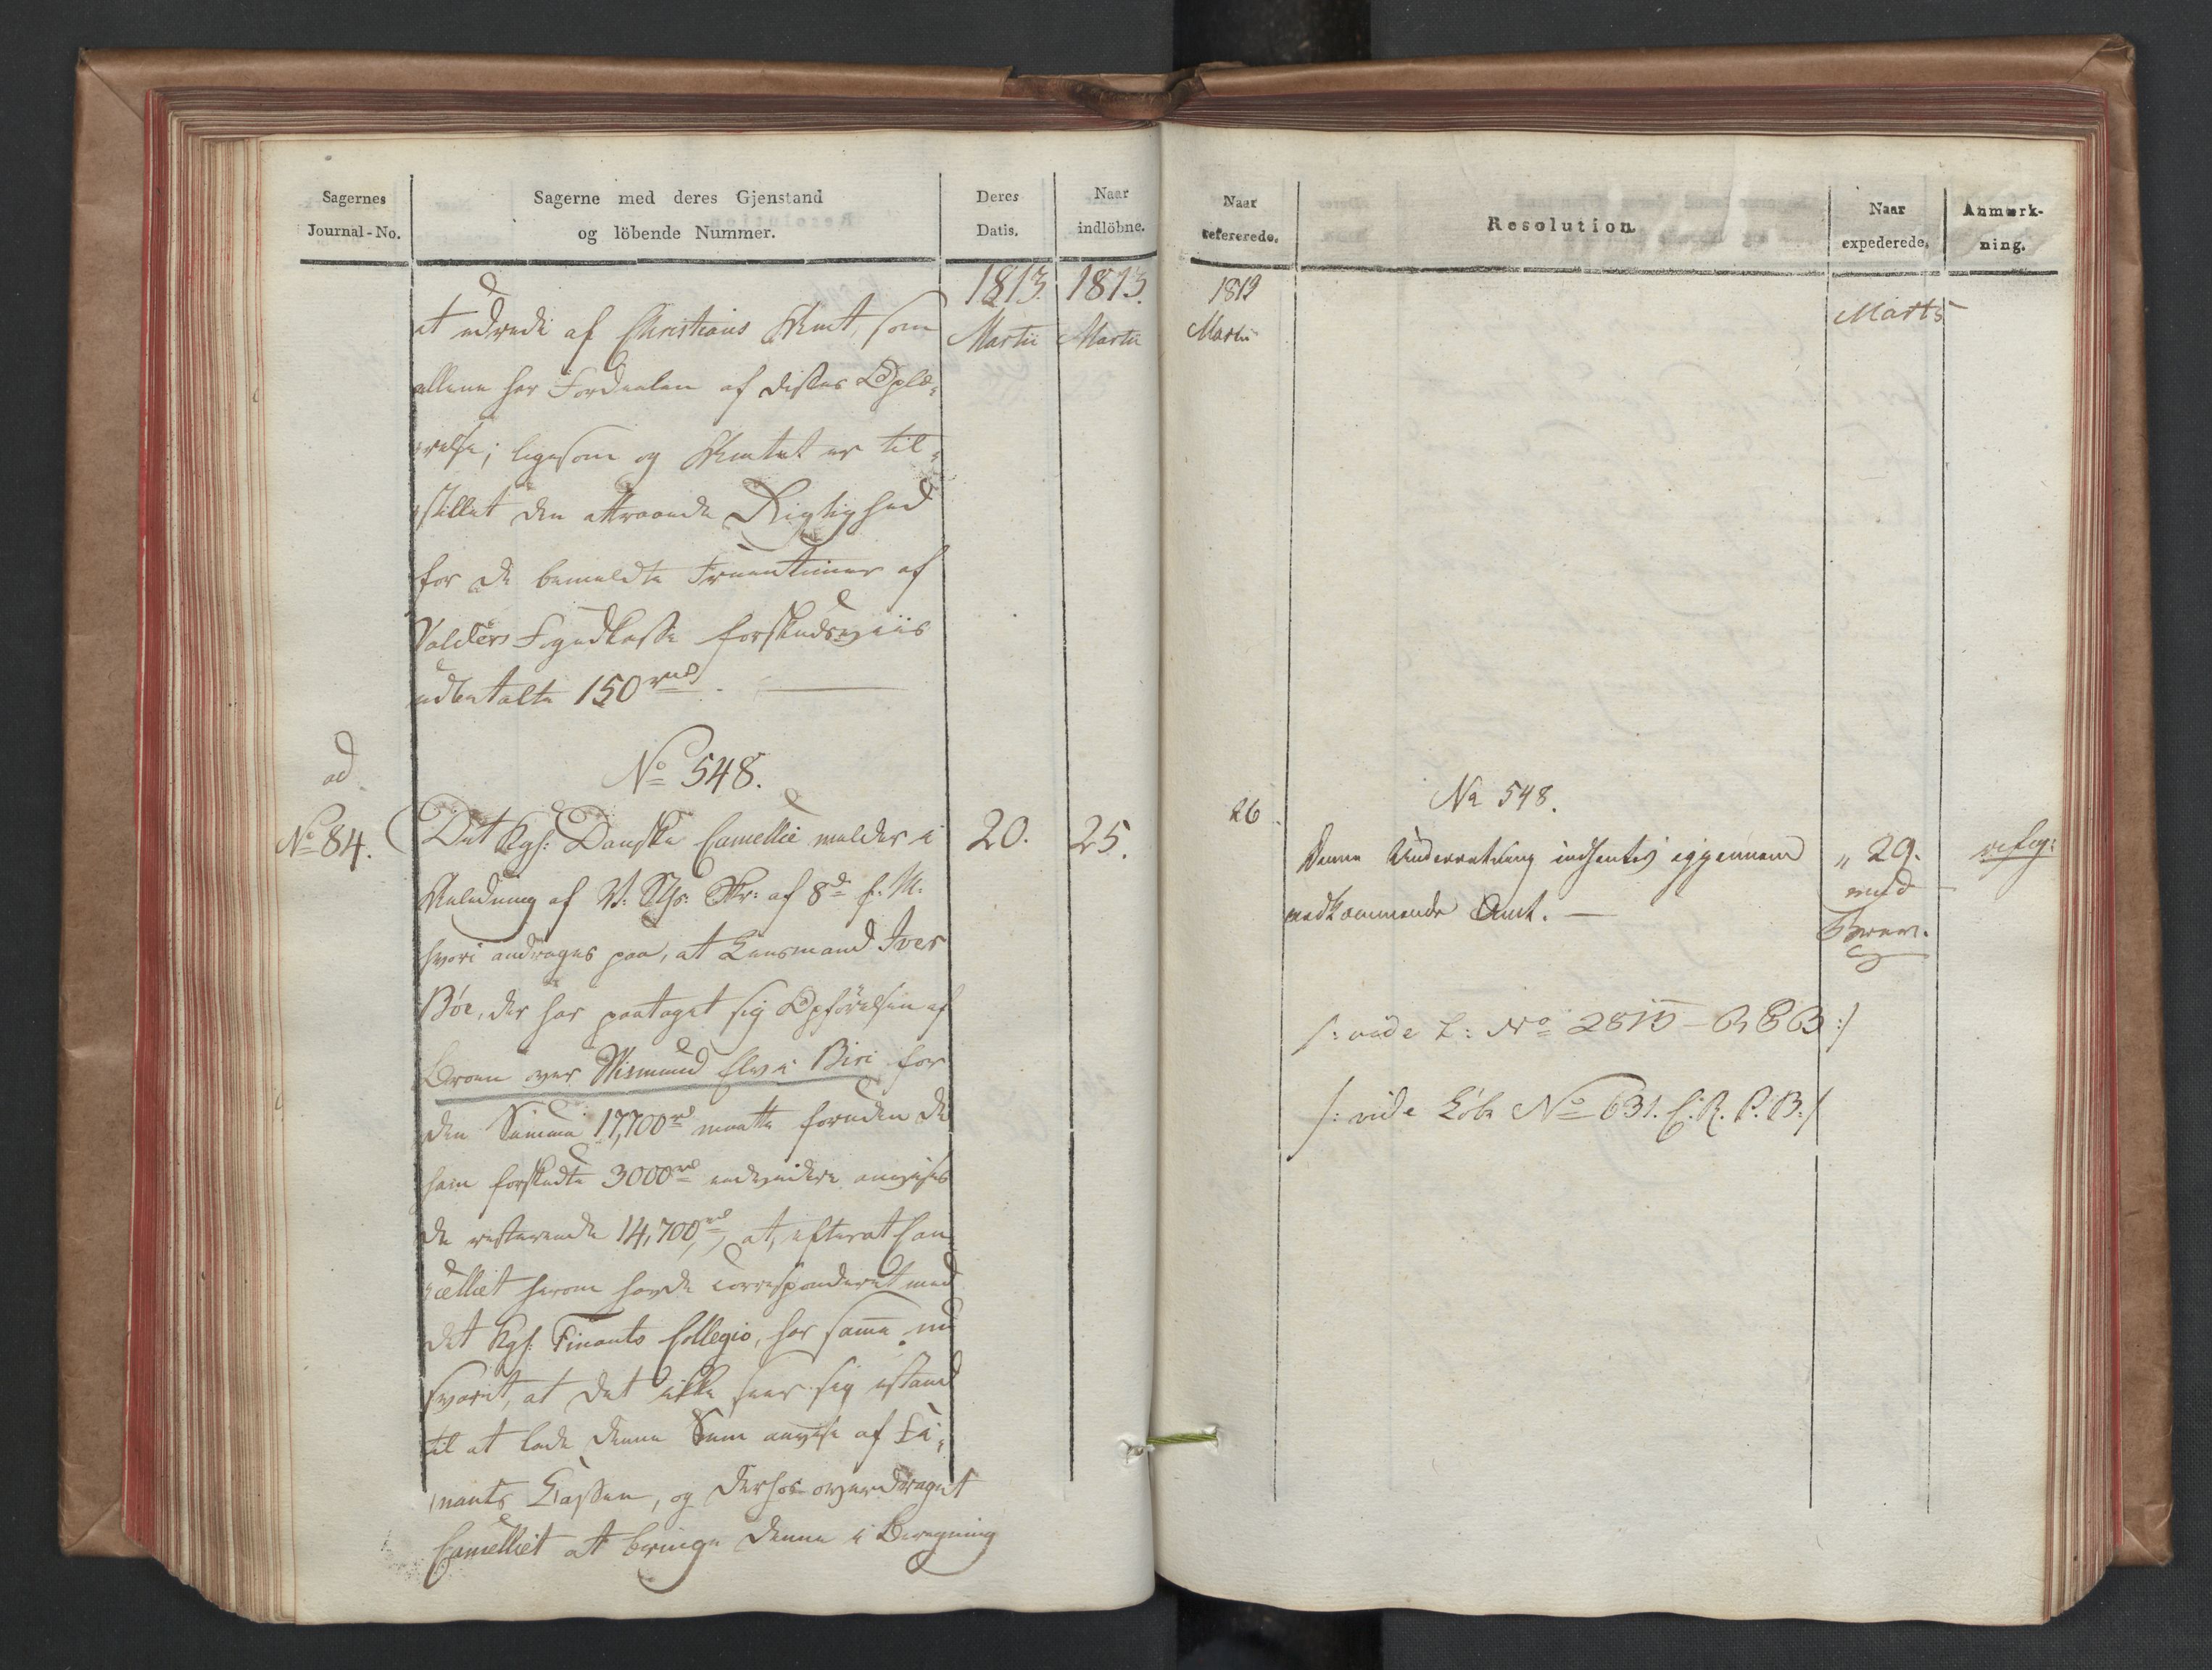 Sagernes
Journal-No.
Sagerne med deres Gjenstand
og löbende Nummer.
Deres
Datis.
Naar
indlöbne.
1813. 1813.
Martii Martii
at udrede af Christians Amt, som
allene har Fordeelen af disses Oplæ-
relse; ligesom og Amtet er til-
stillet den attraaede Rigtighed
for de bemeldte Fruentimer af
Valders Fogedkasse forskudsviis
udbetalte 150 rd.
ad
No 548.
No 84.
Det Kgl: Danske Cancellie melder i
20.
25.
Anledning af V: Skr: af 8de f. M.
hvori andrages paa, at Lensmand Iver
Böe, der har paataget sig Opförelsen af
Broen over Wismund Elv i Biri for
den Summa 17,700 rd maatte foruden de
ham forskudte 3000 rd endvidere anvises
de resterende 14,700 rd, at, efterat Can-
celliet herom havde correspondert med
det Kgl: Finants Collegio, har samme nu
svaret, at det ikke seer sig istand
til at lade denne Sum anvise af Fi-
nants Cassen, og derhos overdraget
Cancelliet at bringe denne i Beregning
Naar
refererede.
Resolution.
Naar
expederede.
Anmærk-
ning.
1813
Martii
Marts
26.
No 548.
Denne Underretning indsendes igjennem
vedkommende Amt.
" 29.
med
/: vide L: No 2810
/: vide Löbe No 631. C. R. P. B:/